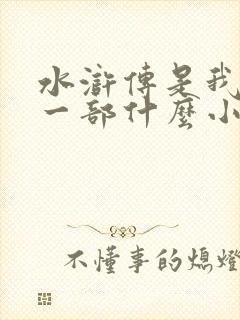 水滸傳是我
一部什麼小
不懂事的熄燈